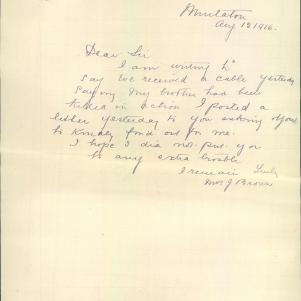 Aug 19 1916.
Dear Sir
I am writing to
say we received a cable yesterday
saying my brother had been
killed in action I posted a
letter yesterday to you asking you
to kindly find out for me.
I hope I did not put you
to any extra trouble
I remain
Mrs J Brown